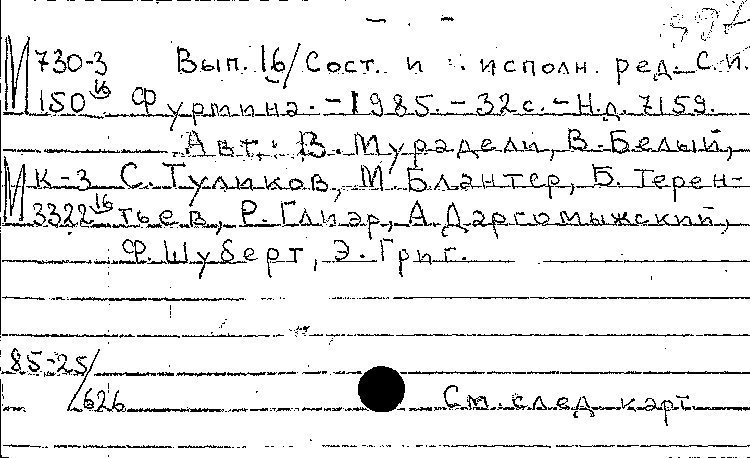 М 730-3 Вып. 16/Сост. и исполн. ред. С.И.
150 16 Фурмина. - 1985. - 32 с. - Н.д. 7159.
Авт.: В. Мурадели, В. Белый,
М К-3 С. Туликов, М. Блантер, Б. Терен-
3322 16 тьев, Р. Глиэр, А. Даргомыжский,
Ф. Шуберт, Э. Григ.
85-25/
626 См. след. карт.